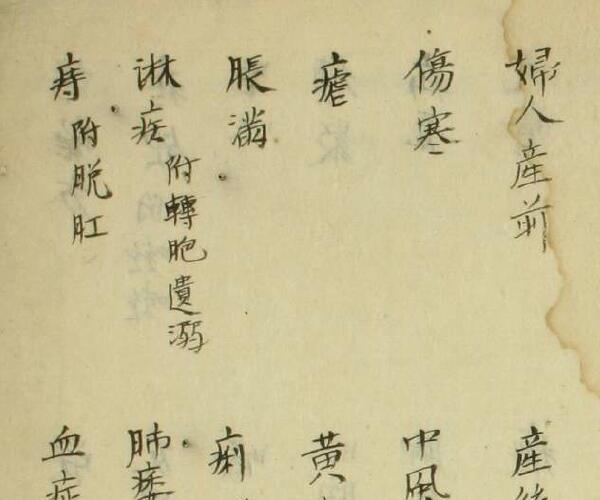 婦人產前
產後
傷寒
中風
瘧
黃
脹滿
痢
淋疾 附轉胞遺溺
肺痿
痔 附脫肛
血症